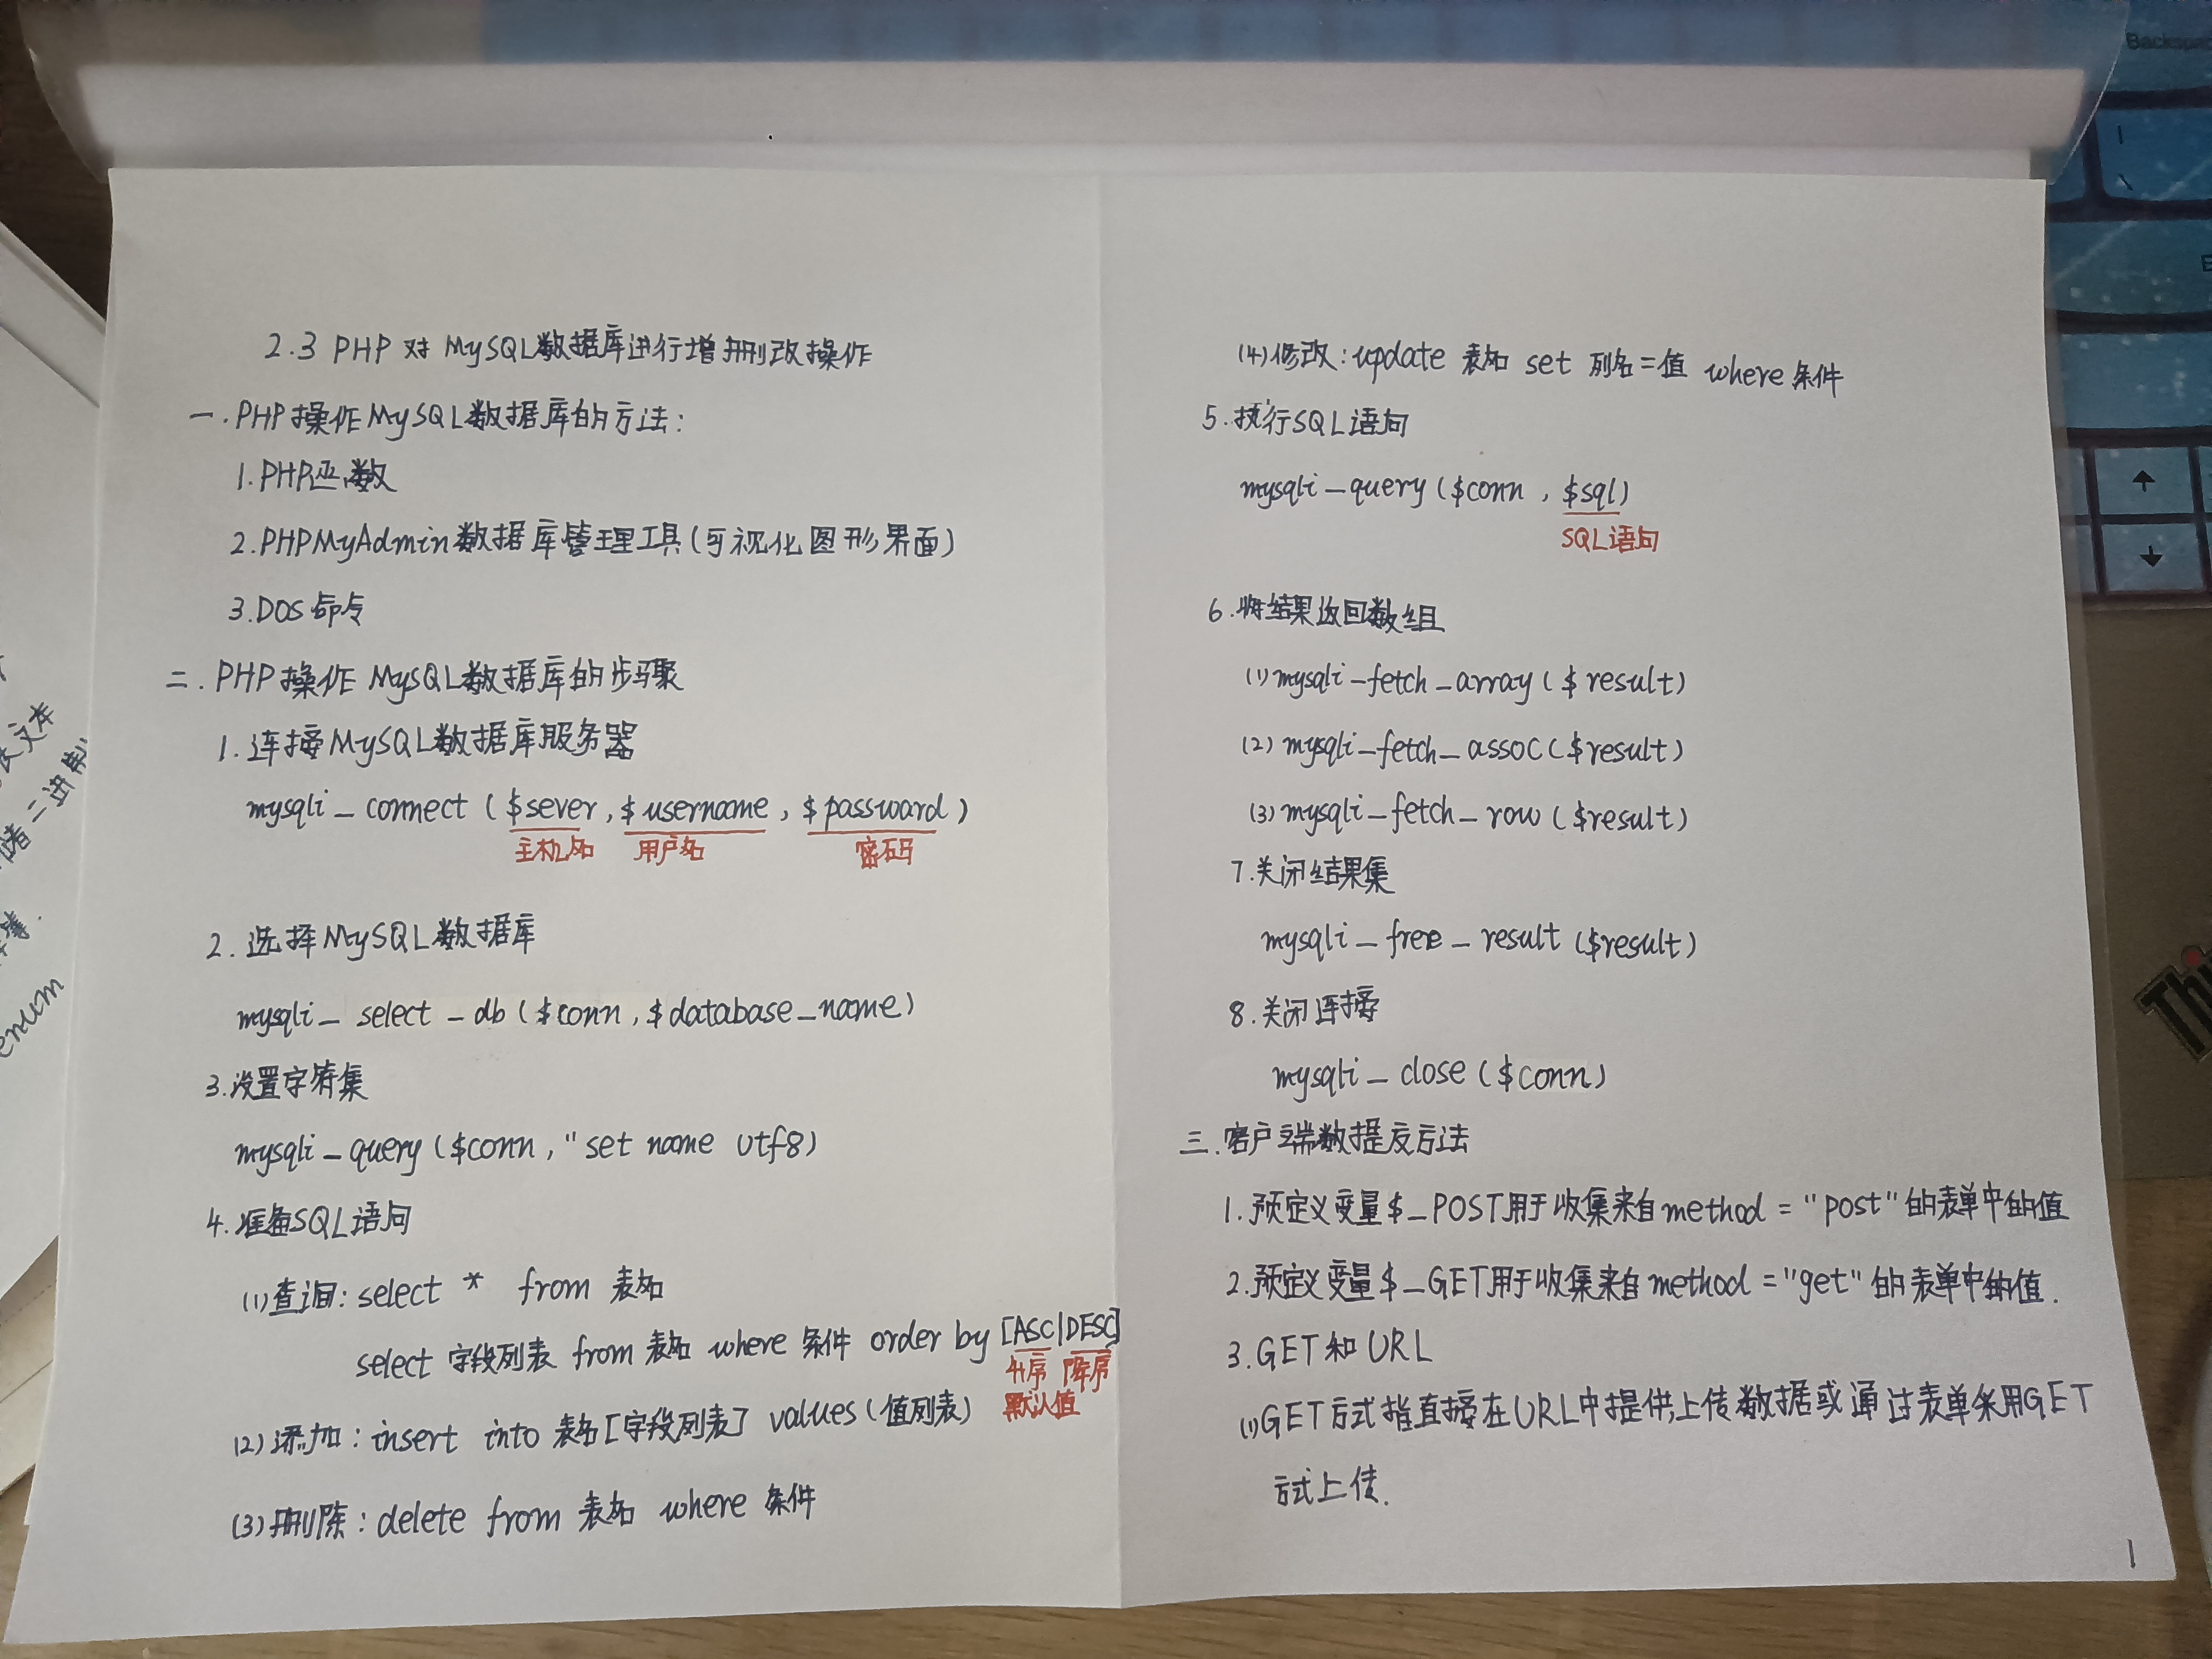 2.3 PHP 对 MySQL数据库进行增删改操作
一.PHP操作MySQL数据库的方法:
1.PHP函数
2.PHPMyAdmin数据库管理工具(可视化图形界面)
3.DOS命令
二.PHP操作 MySQL数据库的步骤
1.连接MySQL数据库服务器
mysqli_connect ($sever,$username,$passward)
主机名 用户名 密码
2.选择MySQL数据库
mysqli_select_db($conn,$database_name)
3.设置字符集
mysqli_query($conn,"set name utf8)
4.准备SQL语句
(1)查询:select * from 表名
select 字段列表 from 表名 where 条件 order by [ASC|DESC]
升序 降序
默认值
(2)添加:insert into 表名[字段列表] values(值列表)
(3)删除:delete from 表名 where 条件
(4)修改:update 表名 set 列名=值 where条件
5.执行SQL语句
mysqli_query($conn,$sql)
SQL语句
6.将结果返回数组
(1)mysqli_fetch_array($result)
(2)mysqli_fetch_assoc($result)
(3)mysqli_fetch_row($result)
7.关闭结果集
mysqli_free_result($result)
8.关闭连接
mysqli_close($conn)
三.客户端数据提交方法
1.预定义变量$_POST用于收集来自method="post"的表单中的值
2.预定义变量$_GET用于收集来自method="get"的表单中的值.
3.GET和URL
(1)GET方式指直接在URL中提供上传数据或通过表单采用GET
式上传.
1
文本
储二进制
enum
Backspace
Thi